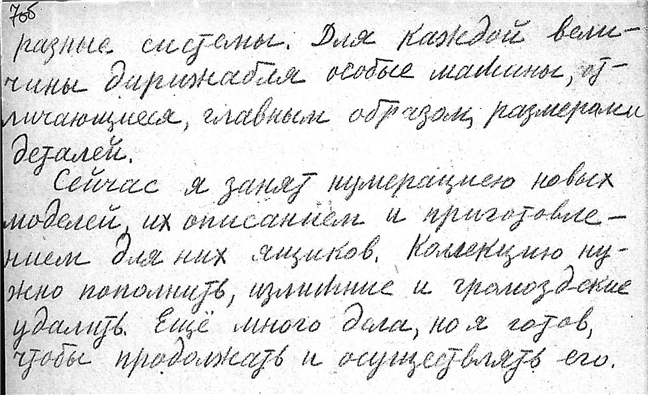 7об
разные системы. Для каждой вели-
чины дирижабля особые машины, от-
личающиеся, главным образом, размерами
деталей.
Сейчас я занят нумерациею новых
моделей, их описанием и приготовле-
нием для них ящиков. Коллекцию ну-
жно пополнить, излишние и громоздские
удалить. Ещё много дела, но я готов,
чтобы продолжать и осуществлять его.